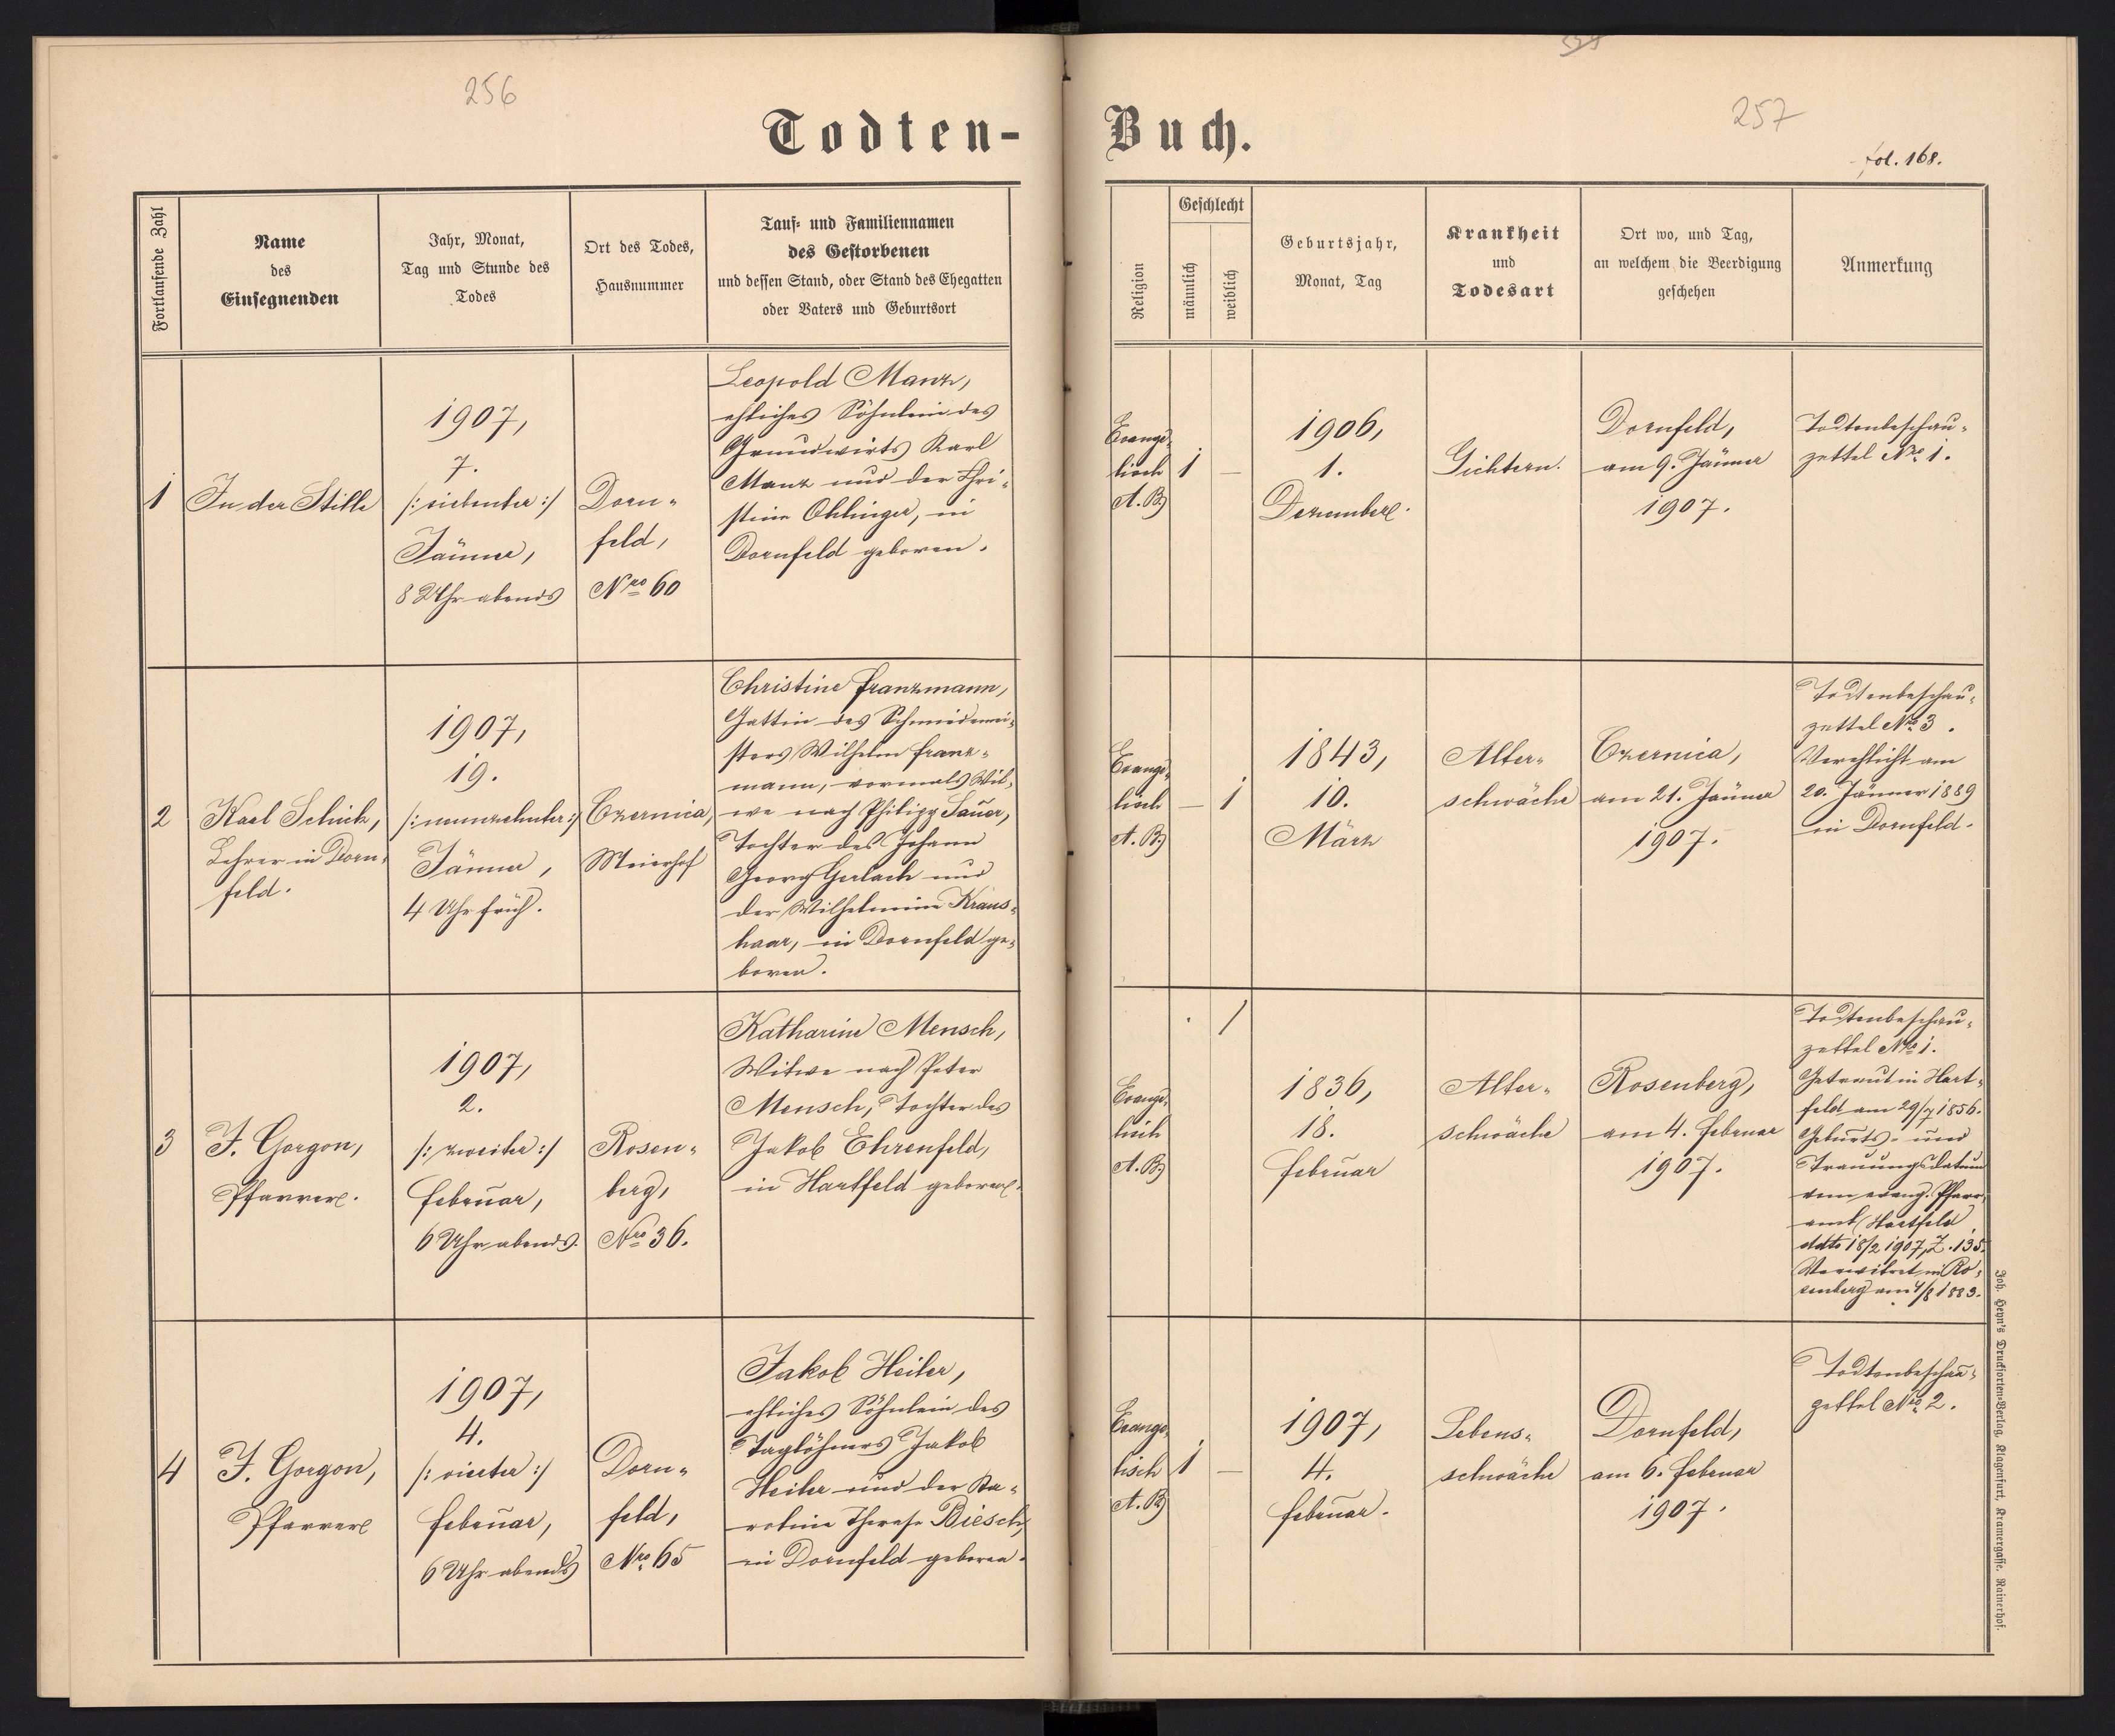 256
257
Todten-Buch.
fol. 168.
Fortlaufende Zahl
Name
des
Einsegnenden
Jahr, Monat,
Tag und Stunde des
Todes
Ort des Todes,
Hausnummer
Tauf- und Familiennamen
des Gestorbenen
und dessen Stand, oder Stand des Ehegatten
oder Vaters und Geburtsort
Religion
Geschlecht
männlich
weiblich
Geburtsjahr,
Monat, Tag
Krankheit
und
Todesart
Ort wo, und Tag,
an welchem die Beerdigung
geschehen
Anmerkung
1
In der Stille
1907,
7.
/: siebenter :/
Jänner,
8 Uhr abends
Dorn-
feld,
Nro 60
Leopold Manz,
ehliches Söhnlein des
Grundwirts Karl
Manz und der Chri-
stine Ohlinger, in
Dornfeld geboren.
Evange-
lisch
A. B.
1
—
1906,
1.
Dezember.
Gichtern.
Dornfeld,
am 9. Jänner
1907.
Todtenbeschau-
zettel Nro 1.
2
Karl Schick,
Lehrer in Dorn-
feld.
1907,
19.
/: neunzehnter :/
Jänner,
4 Uhr früh.
Czernica,
Meierhof
Christine Franzmann,
Gattin des Schmiedemei-
sters Wilhelm Franz-
mann, vormals Wit-
we nach Philipp Sauer,
Tochter des Johann
Georg Gerlach und
der Wilhelmine Kraus-
haar, in Dornfeld ge-
boren.
Evange-
lisch
A. B.
—
1
1843,
10.
März
Alter-
schwäche
Czernica,
am 21. Jänner
1907.
Todtenbeschau-
zettel Nro 3.
Verehlicht am
20. Jänner 1889
in Dornfeld.
3
F. Gorgon,
Pfarrer.
1907,
2.
/: zweiter :/
Februar,
6 Uhr abends.
Rosen-
berg,
Nro 36.
Katharine Mensch,
Witwe nach Peter
Mensch, Tochter des
Jakob Ehrenfeld,
in Hartfeld geboren.
Evange-
lisch
A. B.
1
1836,
18.
Februar
Alter-
schwäche
Rosenberg,
am 4. Februar
1907.
Todtenbeschau-
zettel Nro 1.
Getraut in Hart-
feld am 29/7 1856.
Geburts- und
Trauungsdatum
vom evang. Pfarr-
amt Hartfeld
ddto 18/2 1907, Z. 135.
Verwitwet in Ro-
senberg am 4/8 1883.
4
F. Gorgon,
Pfarrer
1907,
4.
/: vierter :/
Februar,
6 Uhr abends
Dorn-
feld,
Nro 65
Jakob Heiler,
ehliches Söhnlein des
Taglöhners Jakob
Heiler und der Ka-
roline Therese Biesch,
in Dornfeld geboren.
Evange-
lisch
A. B.
1
—
1907,
4.
Februar.
Lebens-
schwäche
Dornfeld,
am 6. Februar
1907.
Todtenbeschau-
zettel Nro 2.
Joh. Heyn's Drucksorten-Verlag, Klagenfurt, Kramergasse, Rainerhof.